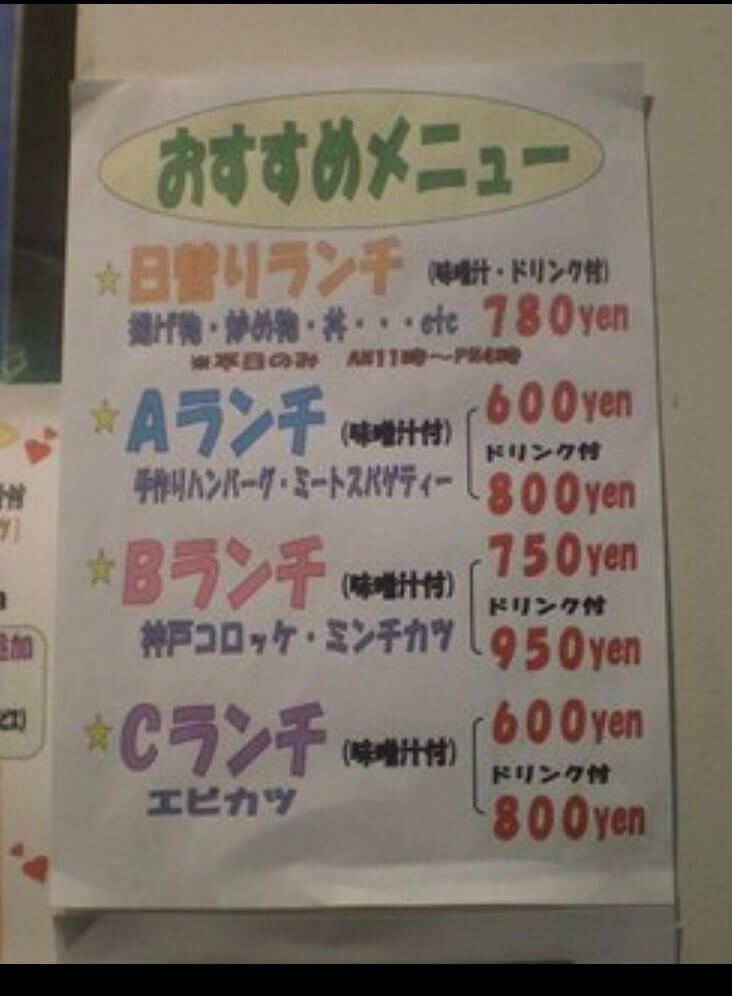 おすすめメニュー
☆日替りランチ (味噌汁・ドリンク付)
揚げ物・炒め物・丼・・・etc 780yen
※平日のみ AM11時～PM4時
☆Aランチ (味噌汁付) 600yen
ドリンク付
手作りハンバーグ・ミートスパゲティー 800yen
☆Bランチ (味噌汁付) 750yen
ドリンク付
神戸コロッケ・ミンチカツ 950yen
☆Cランチ (味噌汁付) 600yen
ドリンク付
エビカツ 800yen
追加